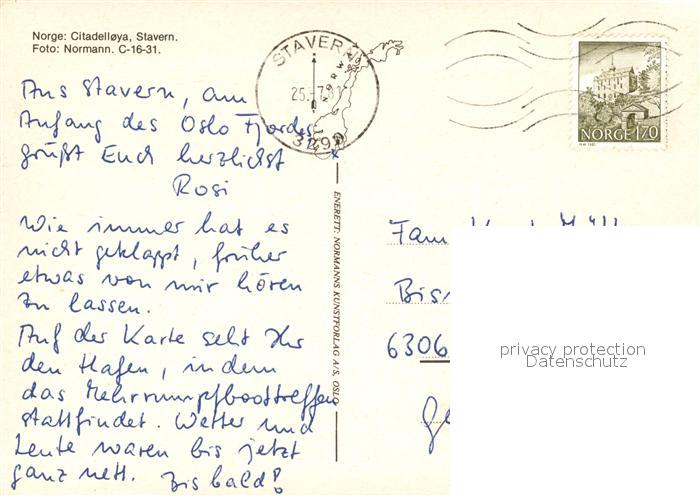 Norge: Citadelløya, Stavern.
Foto: Normann. C-16-31.
STAVERN
NORWAY
25.-7.81
3290
NORGE 170
Aus Stavern, am
Anfang des Oslo Fjordes
grüßt Euch herzlichst
Rosi
Wie immer hat es
nicht geklappt, früher
etwas von mir hören
zu lassen.
Auf der Karte seht Ihr
den Hafen, in dem
das Mehrrumpfboottreffen
stattfindet. Wetter und
Leute waren bis jetzt
ganz nett. Bis bald!
ENERETT: NORMANNS KUNSTFORLAG A/S, OSLO
Fam
Bis
6306
Ge
privacy protection
Datenschutz